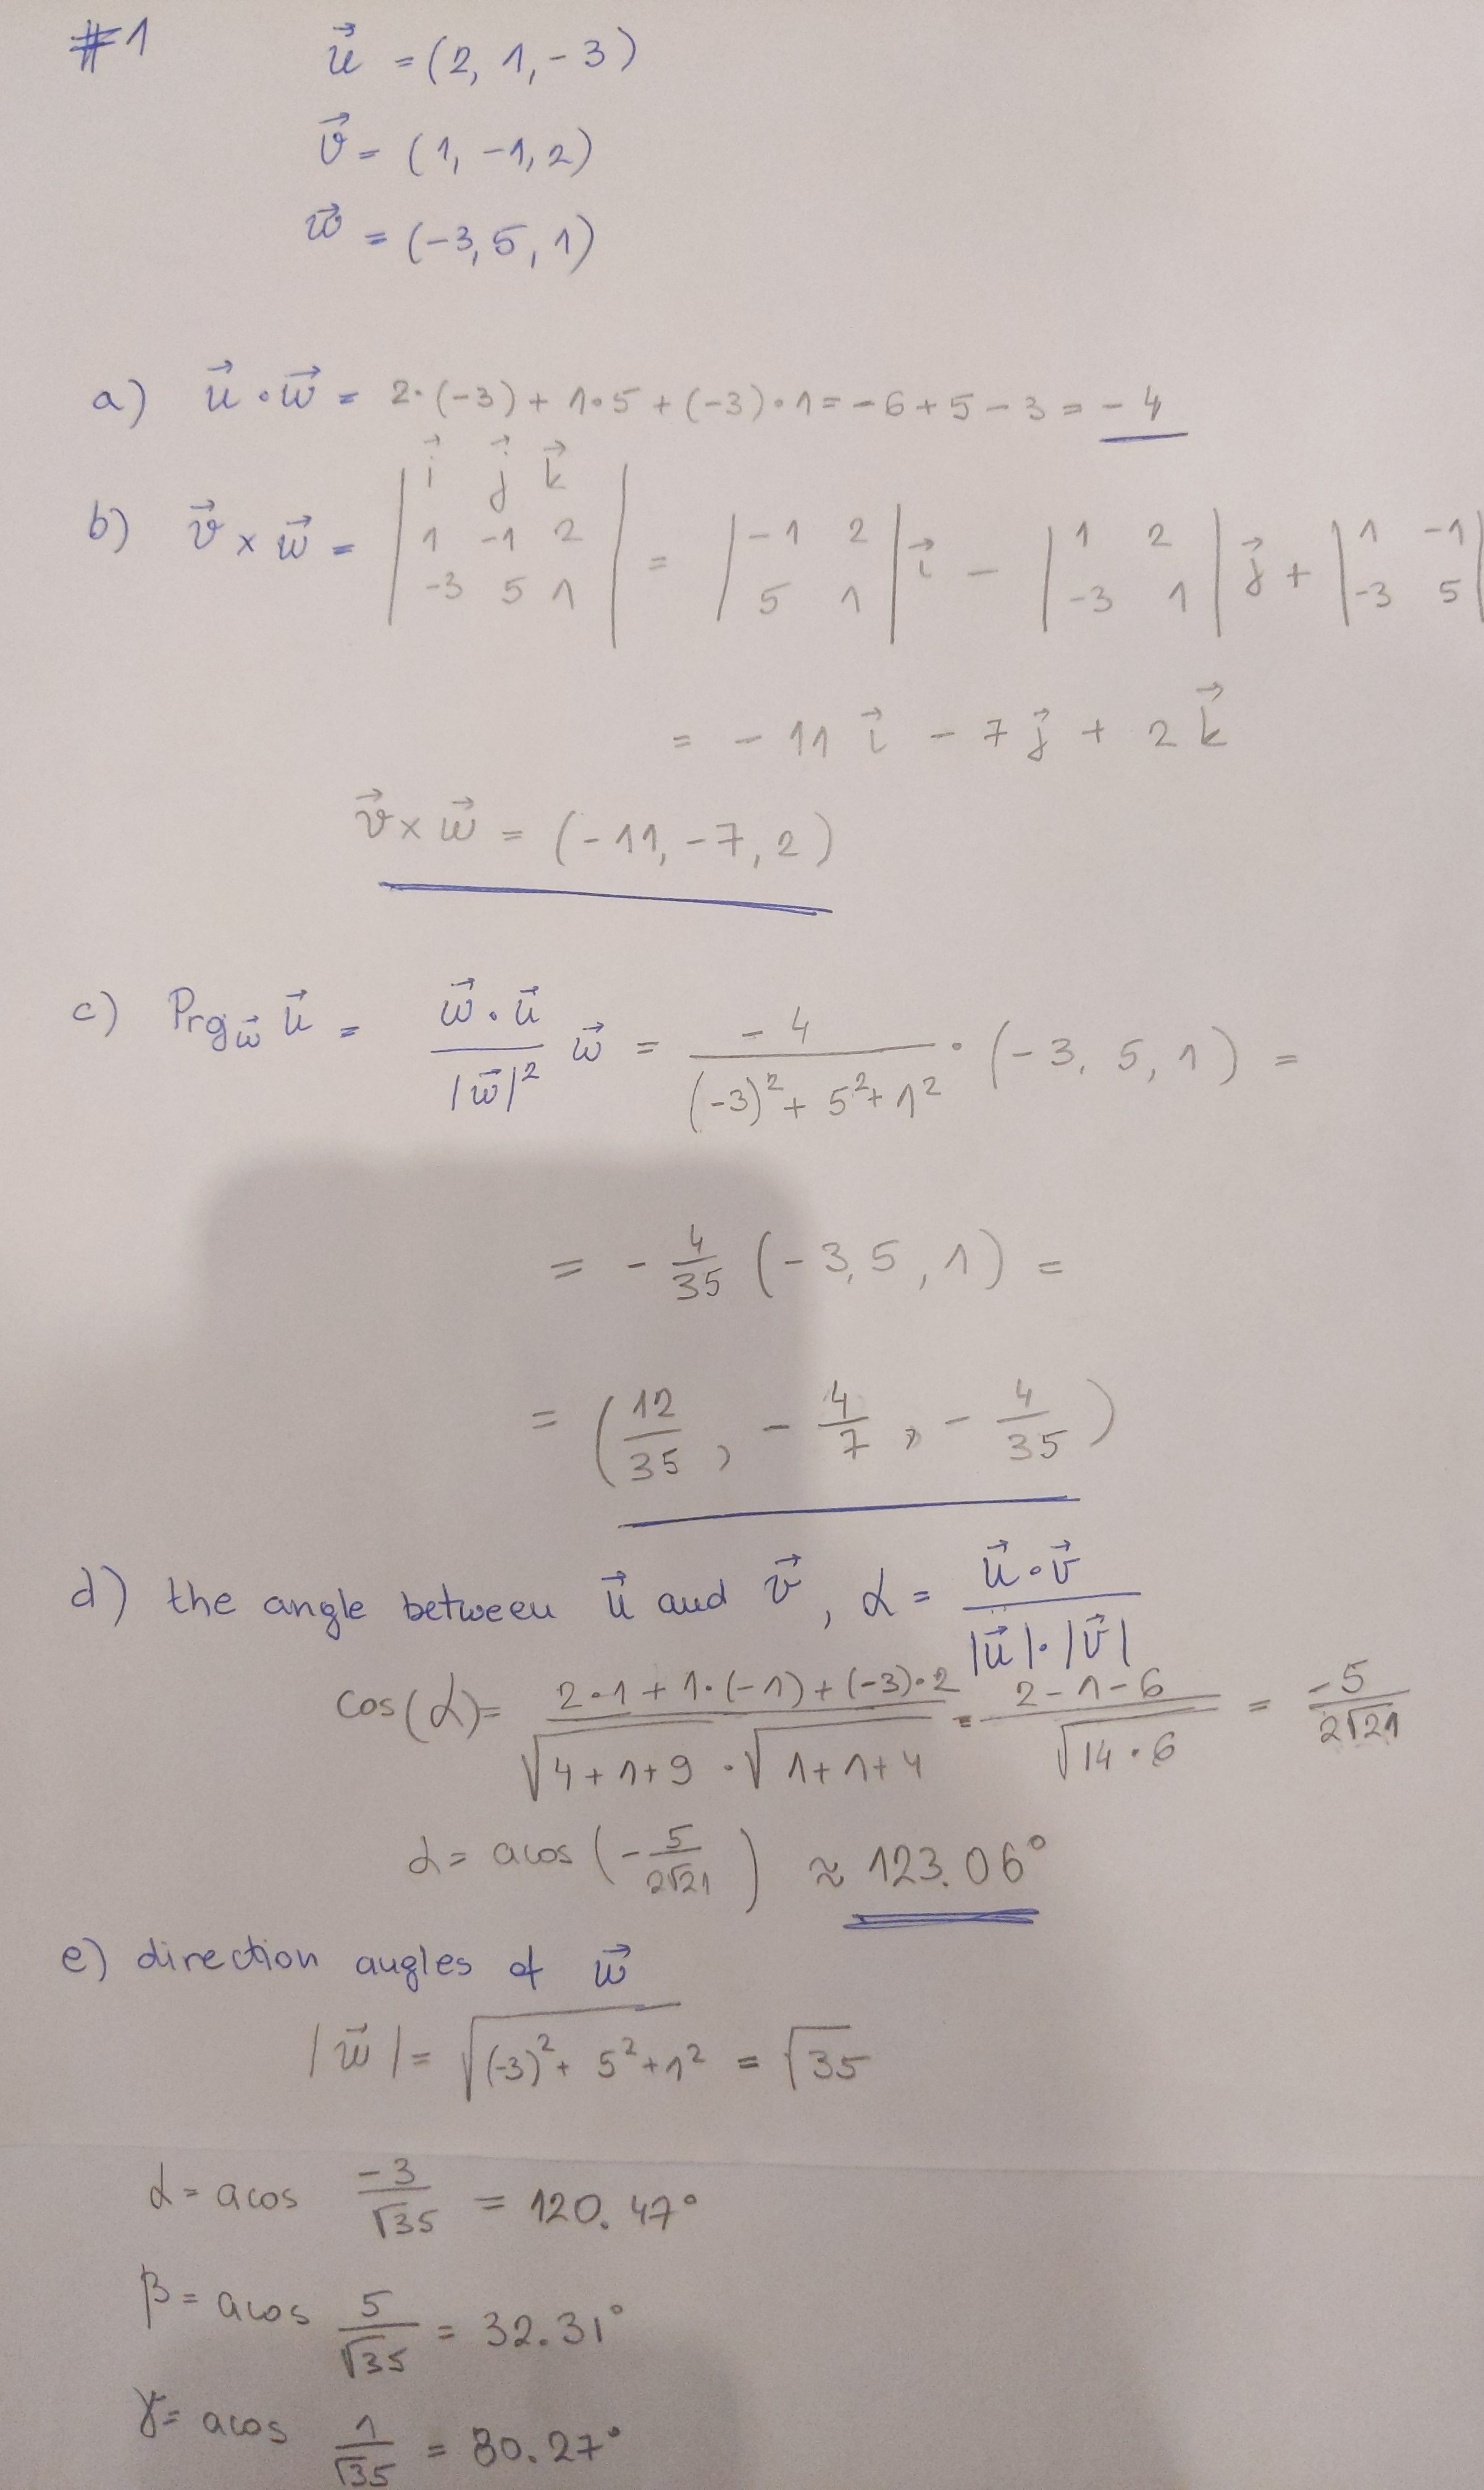 #1 u⃗ = (2, 1, -3)
v⃗ = (1, -1, 2)
w⃗ = (-3, 5, 1)
a) u⃗ · w⃗ = 2·(-3) + 1·5 + (-3)·1 = -6 + 5 - 3 = -4
b) v⃗ × w⃗ = |i⃗ j⃗ k⃗; 1 -1 2; -3 5 1| = |-1 2; 5 1| i⃗ - |1 2; -3 1| j⃗ + |1 -1; -3 5|
= -11 i⃗ - 7 j⃗ + 2 k⃗
v⃗ × w⃗ = (-11, -7, 2)
c) Prg_w⃗ u⃗ = (w⃗ · u⃗)/|w⃗|² w⃗ = -4/((-3)² + 5² + 1²) · (-3, 5, 1) =
= -4/35 (-3, 5, 1) =
= (12/35, -4/7, -4/35)
d) the angle between u⃗ and v⃗, α = (u⃗ · v⃗)/(|u⃗| · |v⃗|)
cos(α) = (2·1 + 1·(-1) + (-3)·2)/(√(4+1+9) · √(1+1+4)) = (2-1-6)/√(14·6) = -5/(2√21)
α = acos(-5/(2√21)) ≈ 123.06°
e) direction angles of w⃗
|w⃗| = √((-3)² + 5² + 1²) = √35
α = acos -3/√35 = 120.47°
β = acos 5/√35 = 32.31°
γ = acos 1/√35 = 80.27°